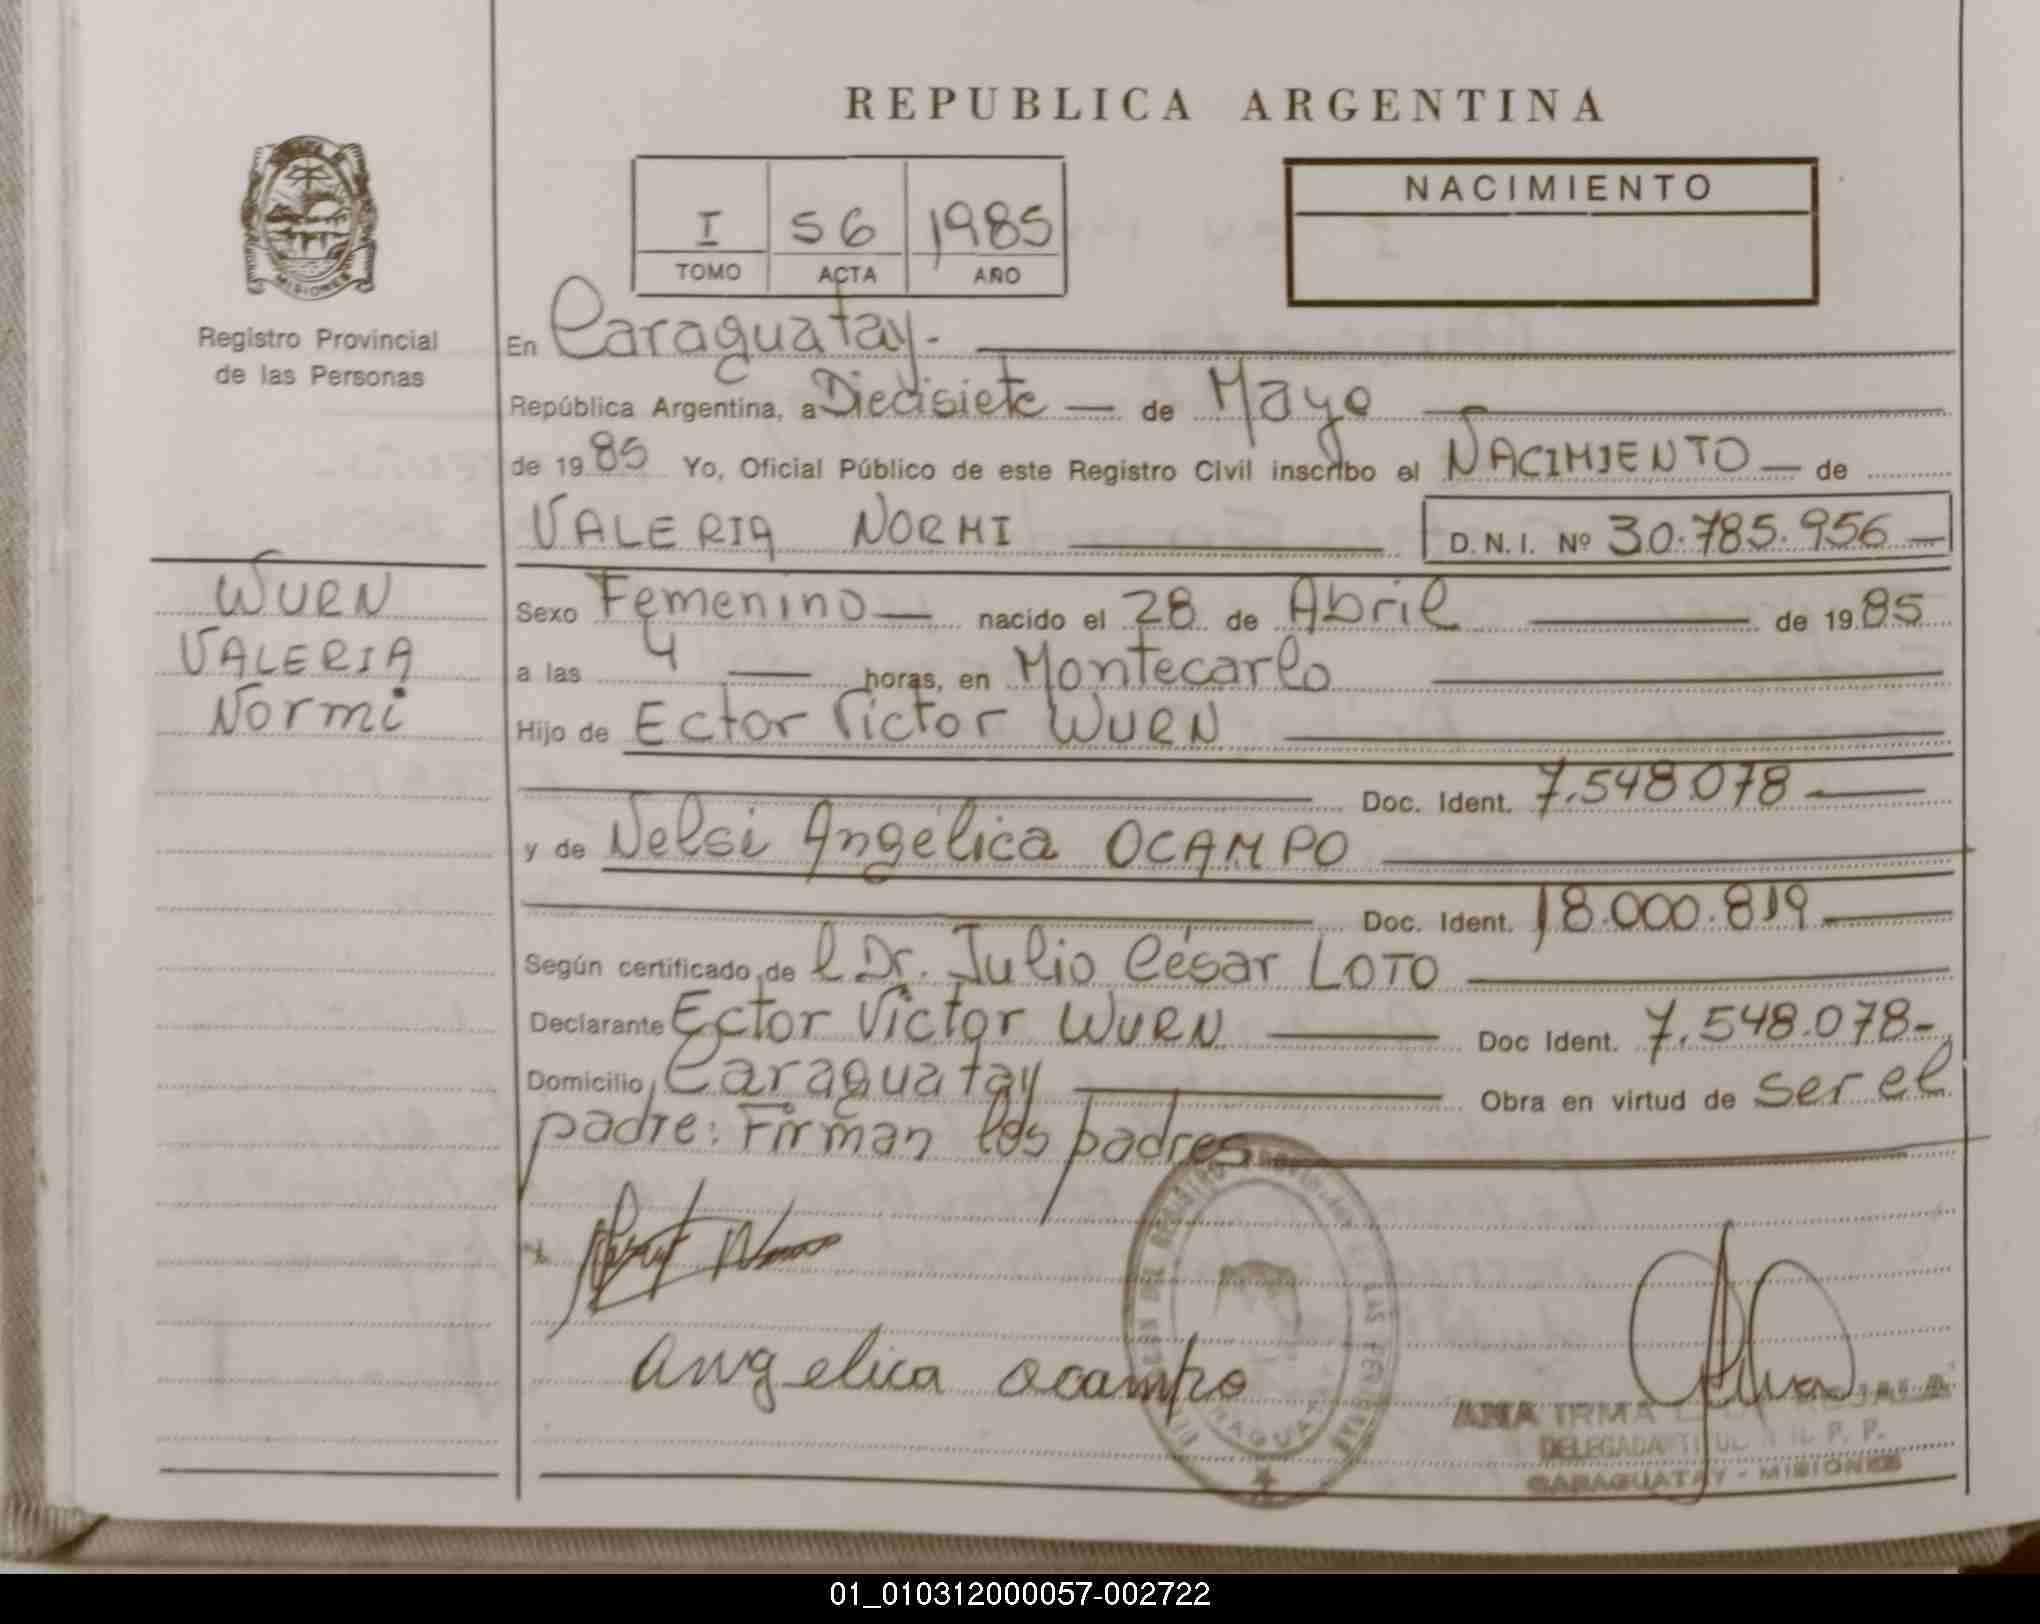 REPUBLICA ARGENTINA
MISIONES
Registro Provincial
de las Personas
I 56 1985
TOMO ACTA AÑO
NACIMIENTO
En Caraguatay.
República Argentina, a Diecisiete de Mayo
de 1985 Yo, Oficial Público de este Registro Civil inscribo el NACIMIENTO de
VALERIA NORMI D. N. I. Nº 30.785.956
WURN
VALERIA
Normi
Sexo Femenino nacido el 28 de Abril de 1985
a las 4 horas, en Montecarlo
Hijo de Ector Victor WURN
Doc. Ident. 7.548.078
y de Nelsi Angélica OCAMPO
Doc. Ident. 18.000.819
Según certificado de l Dr. Julio César LOTO
Declarante Ector Victor WURN Doc Ident. 7.548.078-
Domicilio Caraguatay Obra en virtud de ser el
padre: Firman los padres
Angelica Ocampo
ANA IRMA
DELEGADA TITUL R. P. P.
CARAGUATAY - MISIONES
01_010312000057-002722